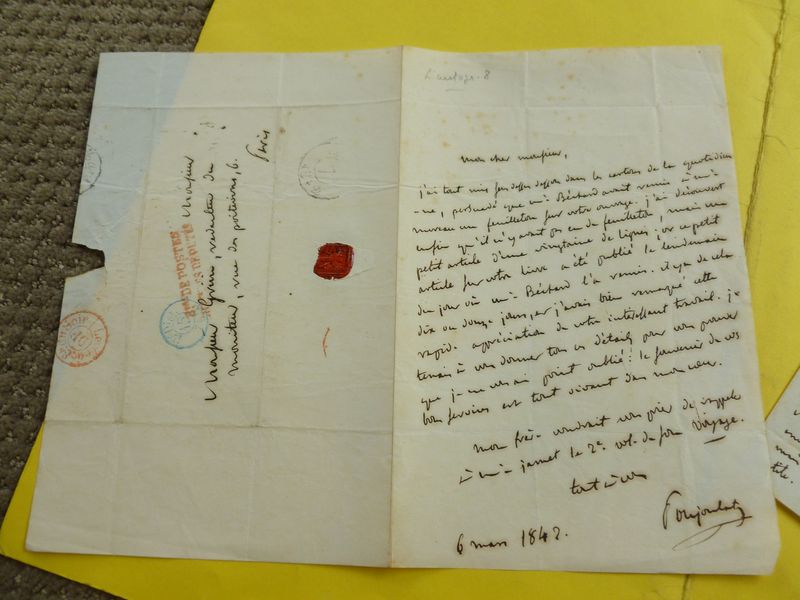 Monsieur
Monsieur Grün, rédacteur du
moniteur, rue des poitevins, 6.
Paris
DE POSTES
mon cher monsieur,
j'ai tout mis sens dessus dessous dans les cartons de la quotidien
-ne, persuadé que Béchard avait remis à
un feuilleton sur votre ouvrage. j'ai découvert
enfin qu'il n'y avait pas eu de feuilleton, mais un
petit article d'une vingtaine de lignes. or ce petit
article sur votre livre a été publié le lendemain
du jour où Béchard l'a remis. il y a de cela
dix ou douze jours, et j'avais bien remarqué cette
rapide appréciation de votre intéressant travail. je
tenais à vous donner tous ces détails pour vous prouver
que je ne vous ai point oublié: le souvenir de vos
bons services est tout vivant dans mon cœur.
mon frère voudrait vous prier de rappeler
à janet le 2e vol. de son voyage.
tout à vous
Poujoulat
6 mars 1842.